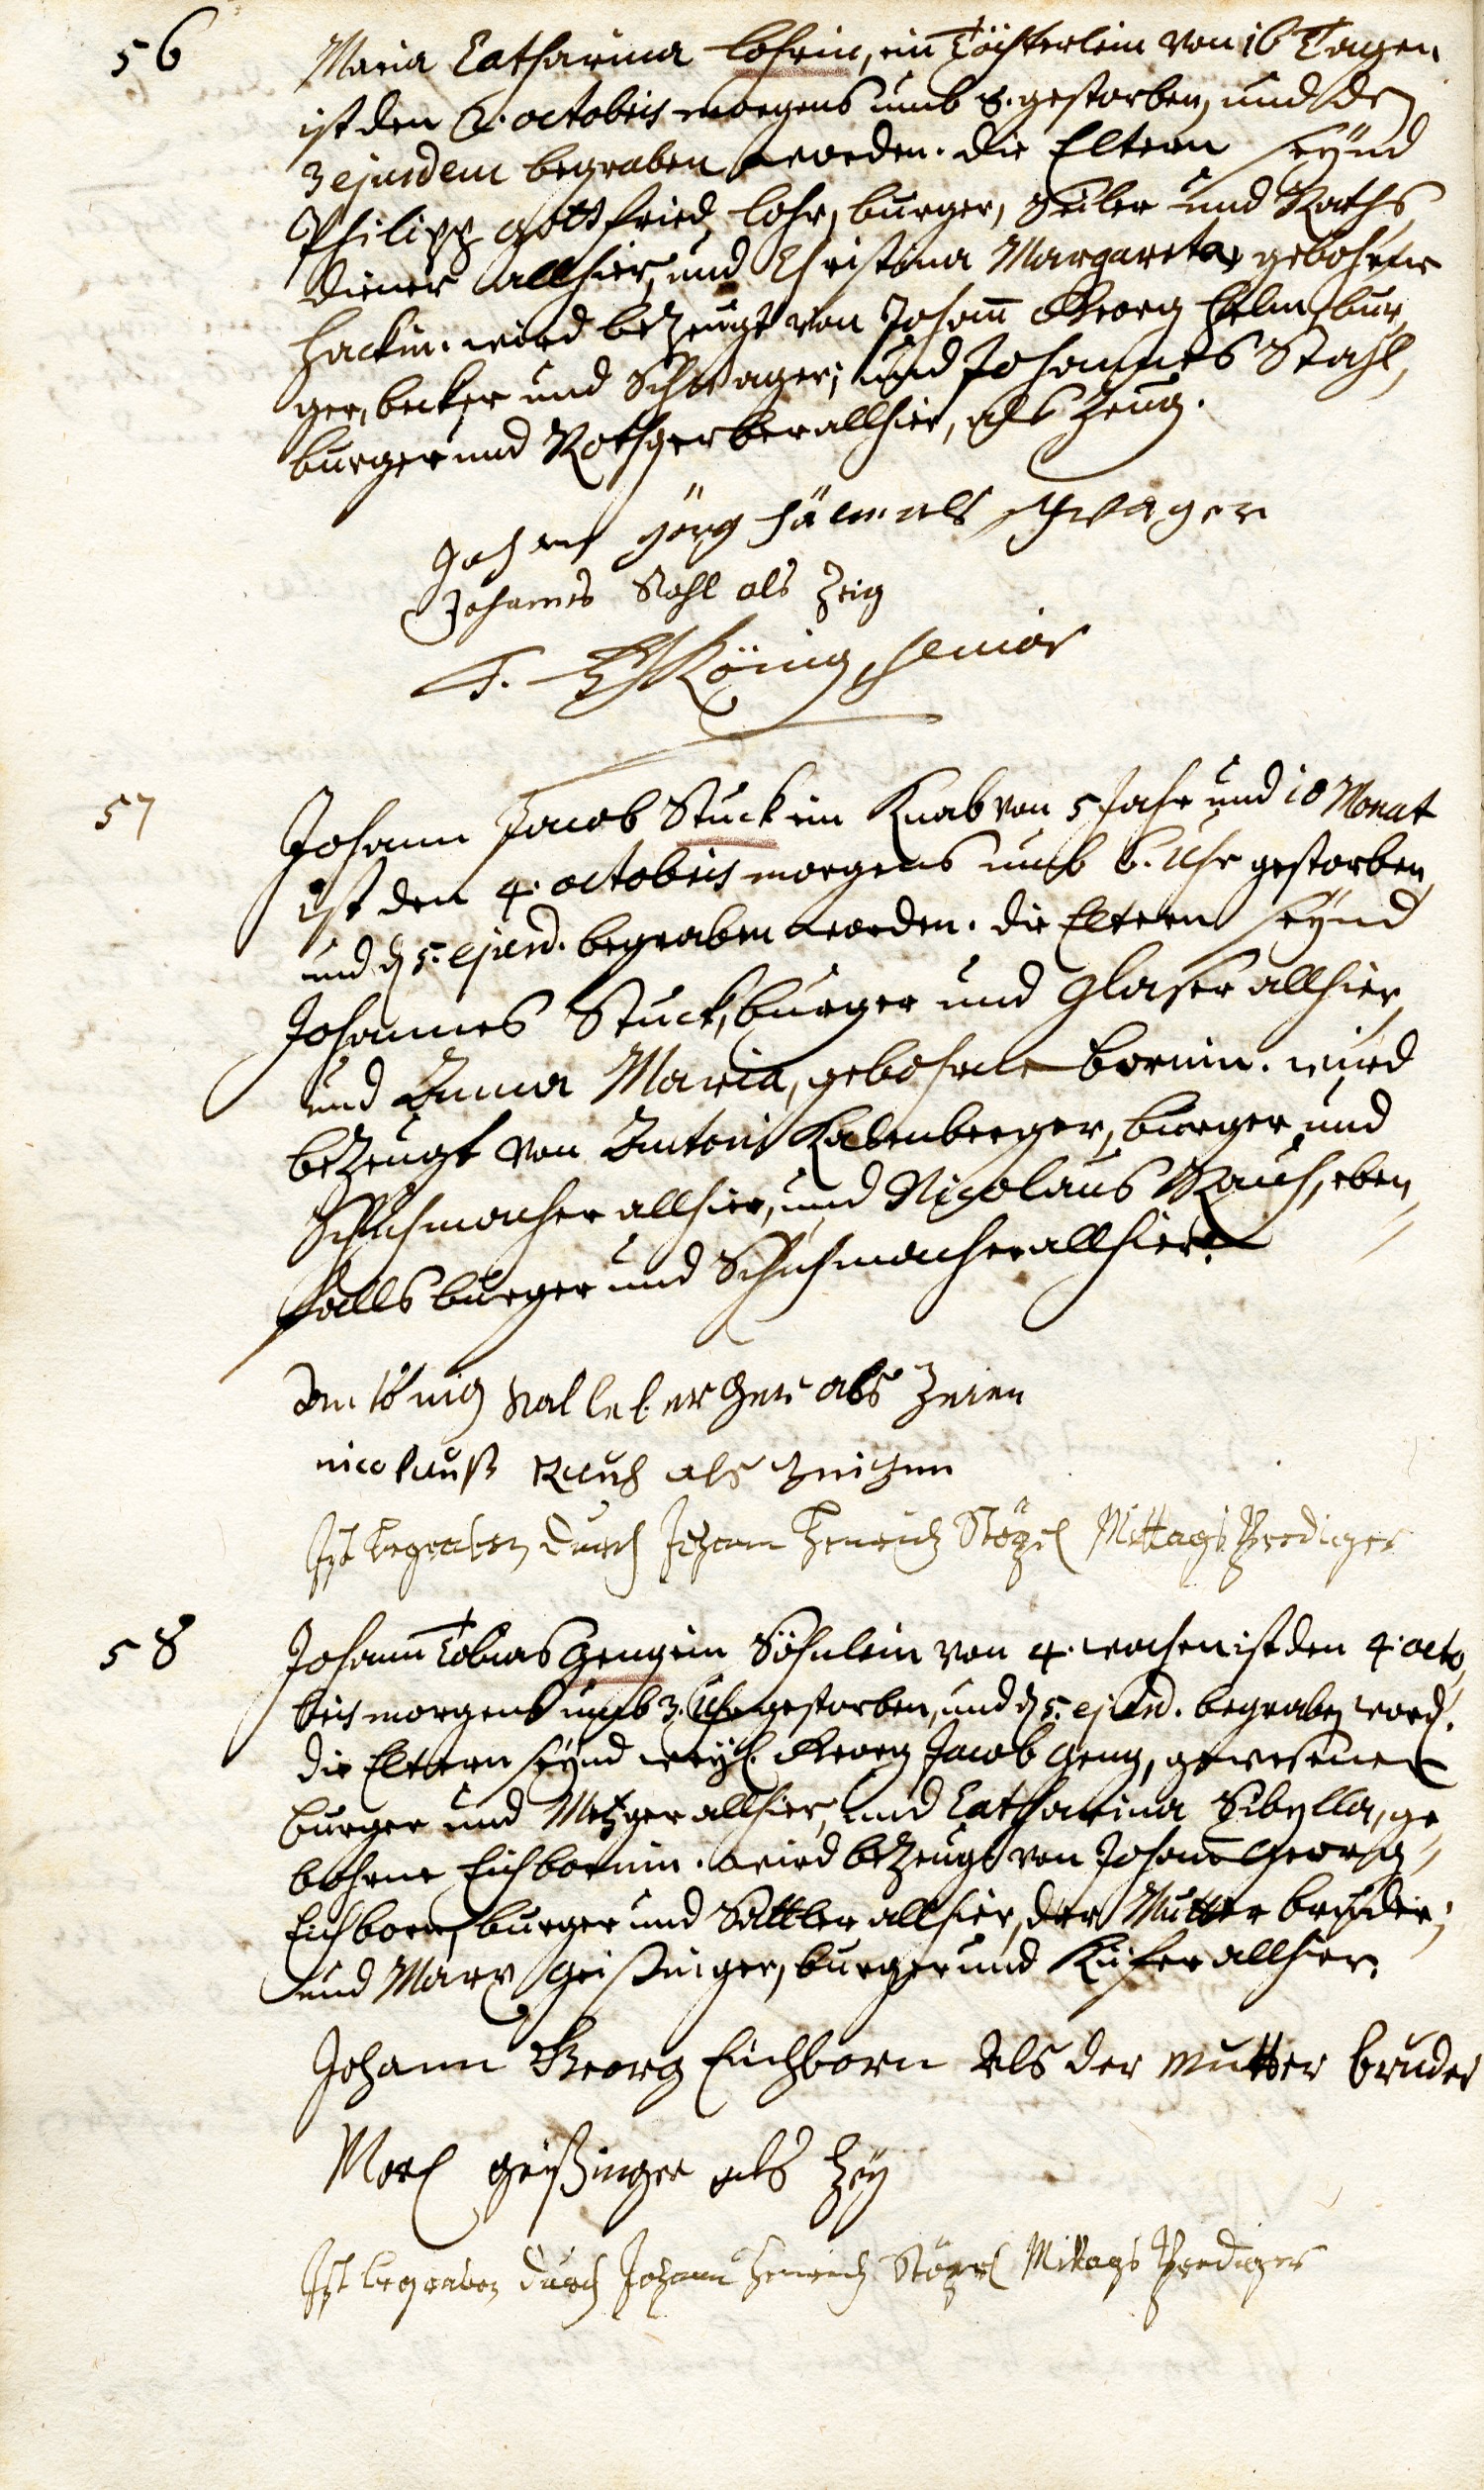 56
Maria Catharina Lohrin, ein Töchterlein von 16 Tagen
ist den 2. octobris morgens umb 8. gestorben, und den
3 ejusdem begraben worden. die Eltern seÿnd
Philipp Gottfried Lohr, burger, Seiler und Raths
diener allhier, und Christina Margareta, gebohrne
Hackin. wird bezeugt von Johann Georg Helm, bur
ger, becker und Schwager; und Johannes Stahl,
burger und Rothgerber allhier, als Zeug.
Johann Jörg Hälm als schwager
Johannes Stahl als Zeig
König, senior
57
Johann Jacob Stuck ein Knab von 5 Jahr und 10 Monat
ist den 4. octobris morgens umb 6. Uhr gestorben,
und d 5. ejusd. begraben worden. die Eltern seÿnd
Johannes Stuck, burger und Glaser allhier,
und Anna Maria, gebohrne Bornin. wird
bezeugt von Antoni Kalenberger, burger und
Schuhmacher allhier, und Nicolaus Rauch, eben
falls burger und Schuhmacher allhier.
als
nicolauß Rauch als
Ist begraben durch Johann Henrich Stözel Mittags Prediger
58
Johann Tobias Geng ein Söhnlein von 4. wochen ist den 4. octo
bris morgens umb 3. Uhr gestorben, und d 5. ejusd. begraben word.
die Eltern seÿnd weÿl. Georg Jacob Geng, gewesener
burger und Metzger allhier, und Catharina Sibylla, ge
bohrne Eichbornin. wird bezeugt von Johann Georg
Eichborn, burger und Sattler allhier, der Mutter bruder;
und Marx Geißinger, burger und Küfer allhier.
Johann Georg Eichborn Als der mutter bruder
Marx geißinger als Zeÿg
Ist begraben durch Johann Henrich Stözel Mittags Prediger